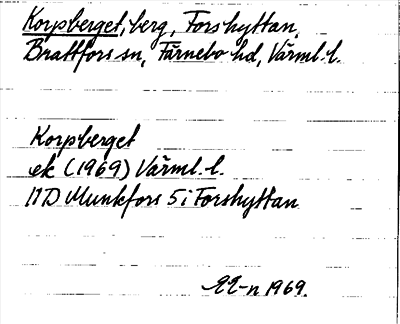 Korpberget, berg, Forshyttan,
Brattfors sn, Färnebo hd, Värml. l.
Korpberget
ek (1969) Värml. l.
11D Munkfors 5 i Forshyttan
1969.